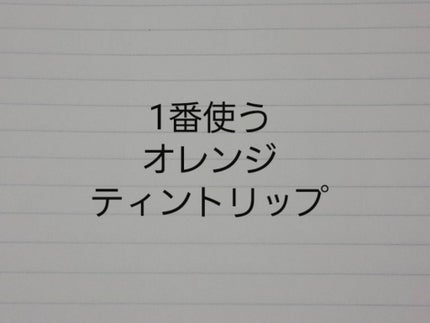 1番使う
オレンジ
ティントリップ